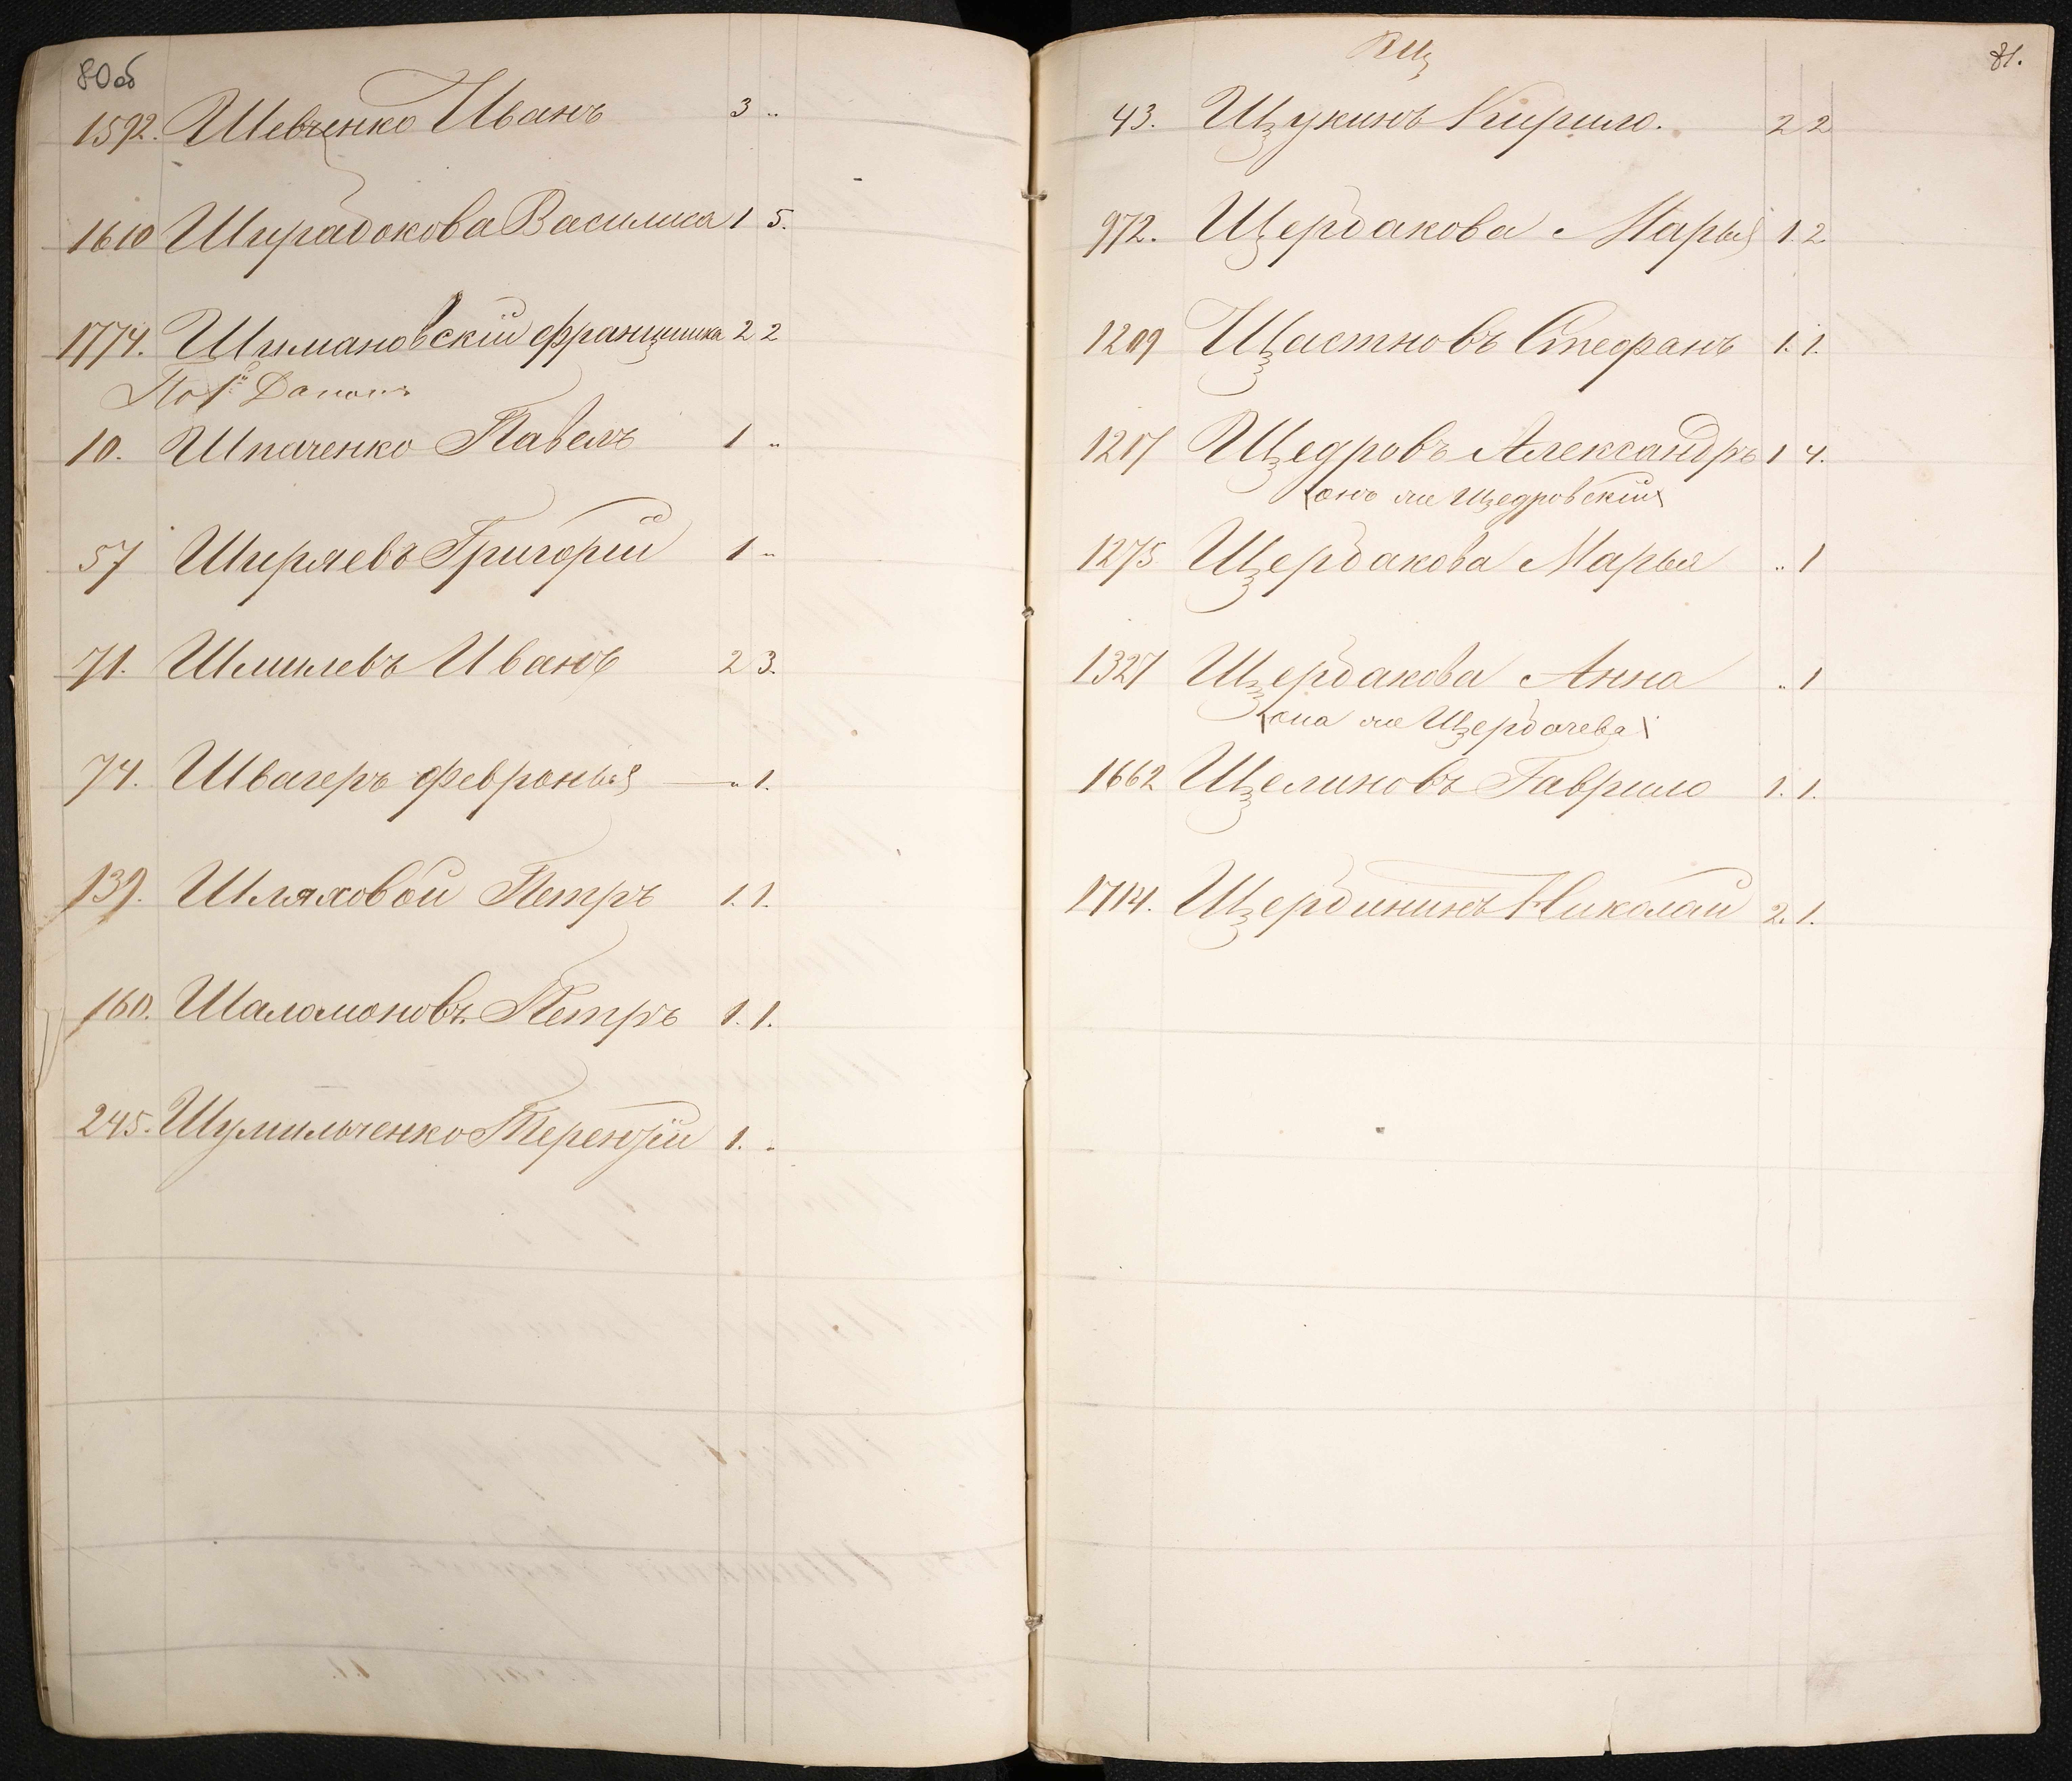 80 об
1592. Шевченко Иванъ 3 "
1610 Ширабокова Василиса 1 5.
1774. Шимановскій Францишка 2 2
По 1й
10. Шпаченко Павелъ 1 "
57 Ширяевъ Григорій 1 "
71. Шмилевъ Иванъ 2 3.
74. Швагеръ Февронья — " 1.
139. Шляховой Петръ 1. 1.
160. Шаламоновъ Петръ 1. 1.
245. Шумильченко Терентій 1. "
81.
Щ
43. Щукинъ Кирило. 2 2
972. Щербакова Марья 1. 2
1209 Щастновъ Стефанъ 1. 1.
1217 Щедровъ Александръ 1 4.
(онъ же Щедровскій)
1275 Щербакова Марья " 1
1327 Щербакова Анна " 1
(она же Щербачева)
1662 Щелиновъ Гаврило 1. 1.
1714. Щербининъ Николай 2. 1.